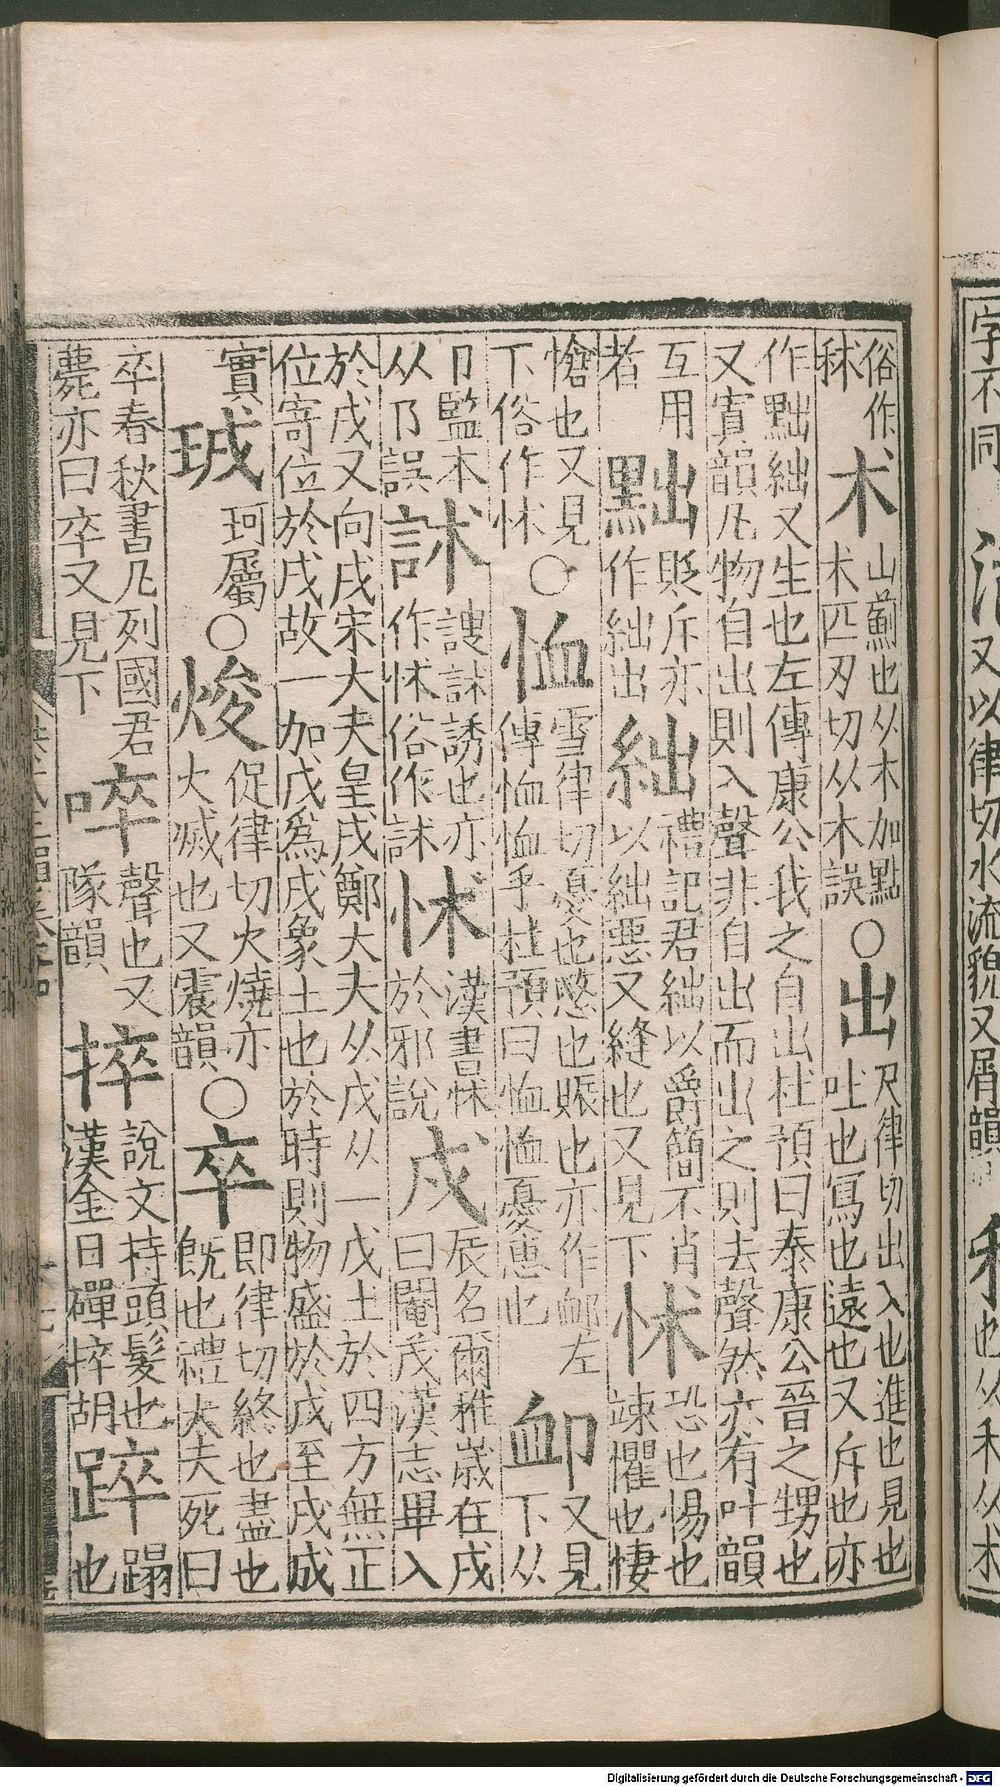 俗作
秫
朮
山薊也从木加點
木匹刃切从木誤
○
出
尺律切出入也進也見也
吐也寫也遠也又斥也亦
作黜絀又生也左傳康公我之自出杜預曰秦康公晉之甥也
又寘韻凡物自出則入聲非自出而出之則去聲然亦有叶韻
互用
者
黜
貶斥亦
作絀出
絀
禮記君絀以爵簡不肖
以絀惡又縫也又見下
怵
恐也惕也
竦懼也悽
愴也又見
下俗作怺
○
恤
雪律切憂也愍也賑也亦作卹左
傳恤恤乎杜預曰恤恤憂患也
卹
又見
下从
卩監本
从卪誤
訹
謏訹誘也亦
作怵俗作訹
怵
漢書怵
於邪說
戌
辰名爾雅歲在戌
曰閹茂漢志畢入
於戌又向戌宋大夫皇戌鄭大夫从戊从一戊土於四方無正
位寄位於戌故一加戊爲戌象土也於時則物盛於戊至戌成
實
珬
珂屬
○
焌
促律切火燒亦
火滅也又震韻
○
卒
即律切終也盡也
旣也禮大夫死曰
卒春秋書凡列國君
薨亦曰卒又見下
啐
聲也又
隊韻
捽
說文持頭髮也
漢金日磾捽胡
踤
蹋
也
字不同
又以律切水流貌又屑韻
也从禾从木
Digitalisierung gefördert durch die Deutsche Forschungsgemeinschaft - DFG